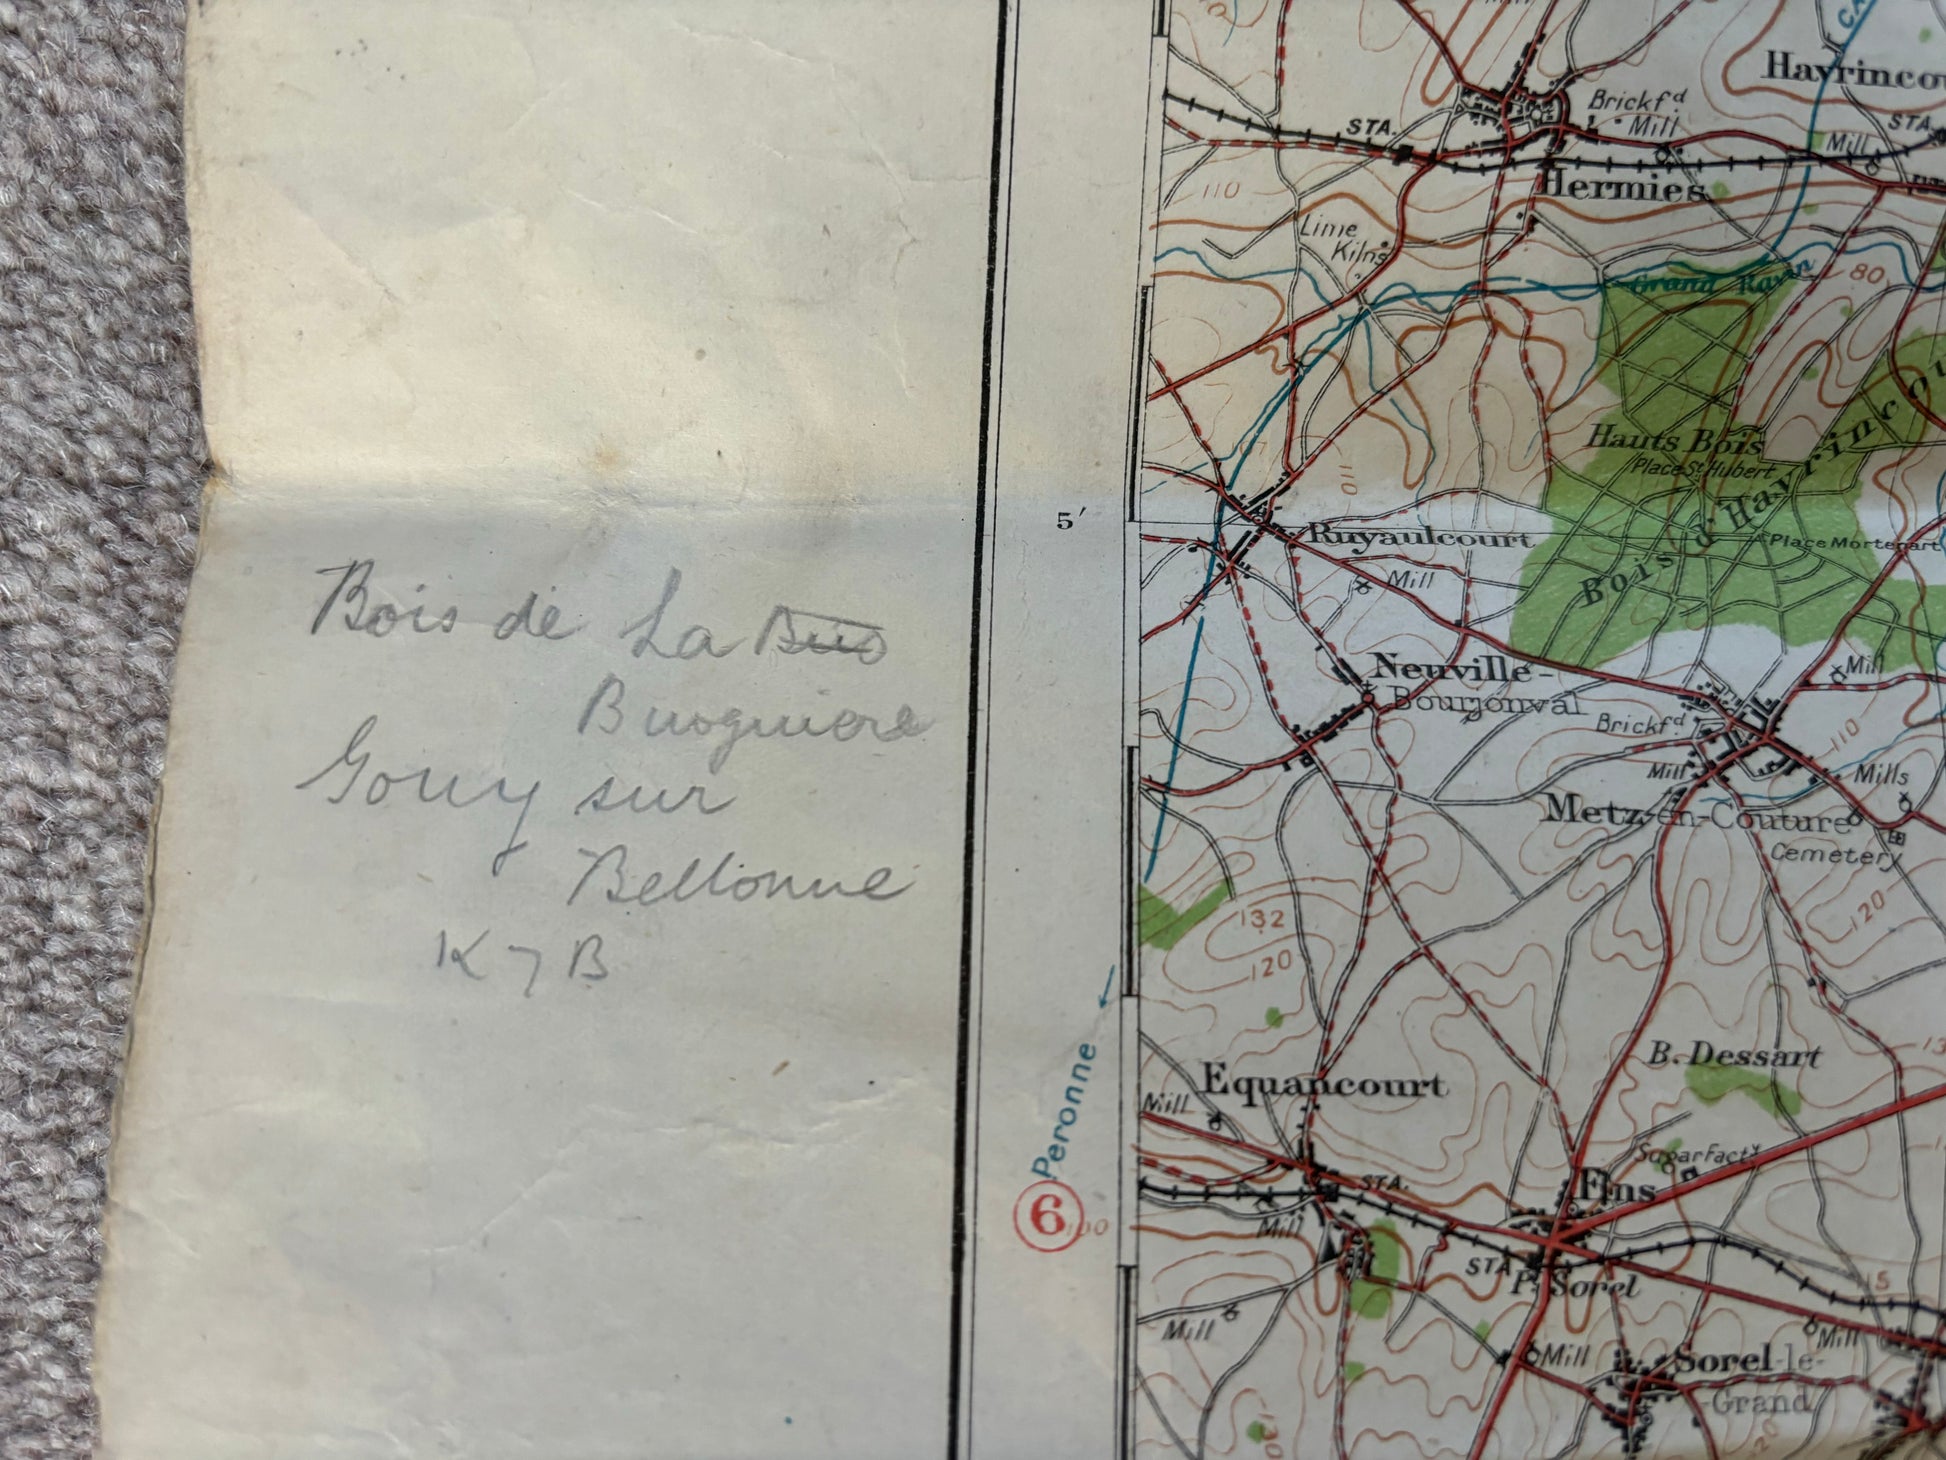 Bois de La Buo
Buogniere
Gouy sur
Bellonne
K 7 B
5'
Peronne
6
100
Havrincou
STA.
Brickfd.
Mill
Mill
STA.
Hermies
110
Lime
Kilns
Grand Ravin
80
Hauts Bois
Place St Hubert
Bois d'Havrincou
110
Ruyaulcourt
Place Mortenart
Mill
Neuville-
Bourjonval
Mill
Brickfd.
110
Mill
Mills
Metz-en-Couture
Cemetery
132
120
120
B. Dessart
Equancourt
Mill
Sugar Facty
STA.
Fins
Mill
STA
P. Sorel
15
Mill
Mill
Mill
Sorel-le-
-Grand
130
120